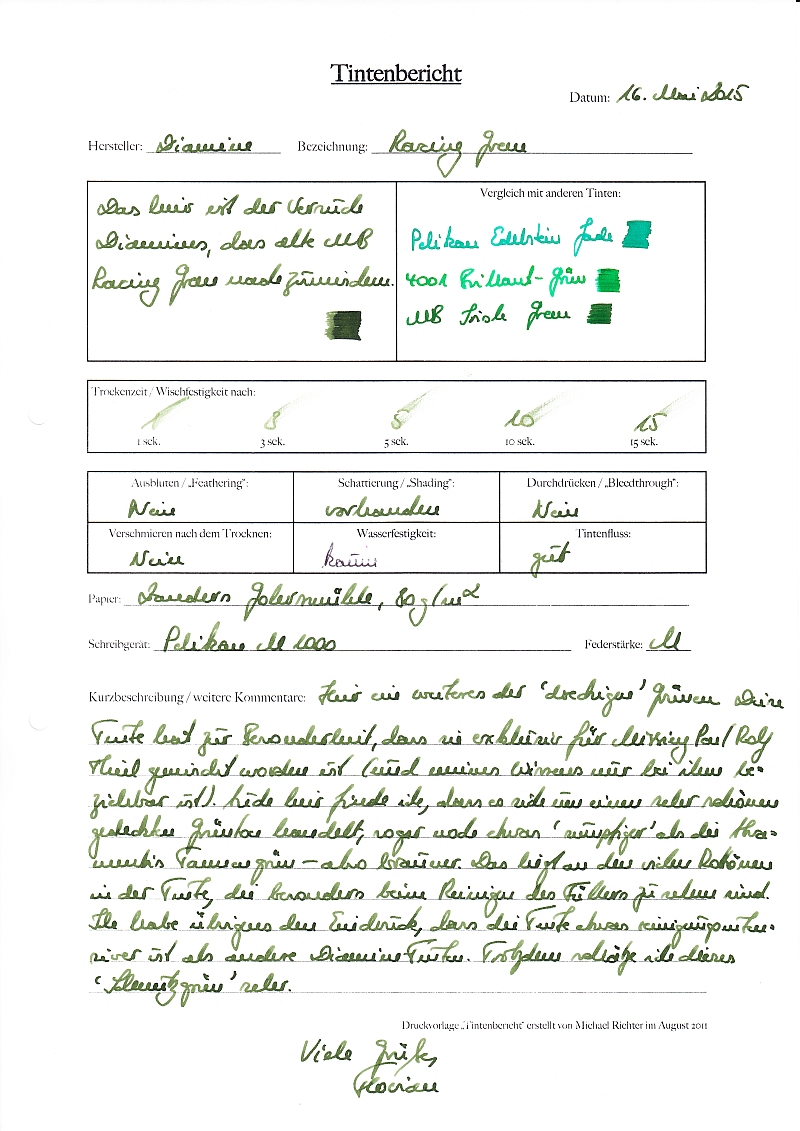 Tintenbericht
Datum: 16. Mai 2015
Hersteller: Diamine Bezeichnung: Racing Green
Das hier ist der Versuch
Diamines, das alte MB
Racing Green nachzumischen.
Vergleich mit anderen Tinten:
Pelikan Edelstein Jade
4001 Brillant-Grün
MB Irish Green
Trockenzeit / Wischfestigkeit nach:
1 3 5 10 15
1 sek. 3 sek. 5 sek. 10 sek. 15 sek.
Ausbluten / „Feathering": Schattierung / „Shading": Durchdrücken / „Bleedthrough":
Nein vorhanden Nein
Verschmieren nach dem Trocknen: Wasserfestigkeit: Tintenfluss:
Nein kaum gut
Papier: Zanders Gohrsmühle, 80 g/m²
Schreibgerät: Pelikan M 1000 Federstärke: M
Kurzbeschreibung / weitere Kommentare: Hier ein weiteres der 'dreckigen' Grüns. Diese
Tinte hat zur Besonderheit, dass sie exklusiv für Missing Pen / Rolf
Thiel gemischt worden ist (und meines Wissens nur bei ihm be-
ziehbar ist). Auch hier finde ich, dass es sich um einen sehr schönen
gedeckten Grünton handelt, sogar noch etwas 'sumpfiger' als die
Tannengrün – also brauner. Das liegt an den vielen
in der Tinte, die besonders beim Reinigen des Füllers zu sehen sind.
Ich habe übrigens den Eindruck, dass die Tinte etwas reinigungsinten-
siver ist als andere Diamine-Tinten. Trotzdem schätze ich dieses
'Schmutzgrün' sehr.
Druckvorlage „Tintenbericht" erstellt von Michael Richter im August 2011
Viele Grüße,
Florian